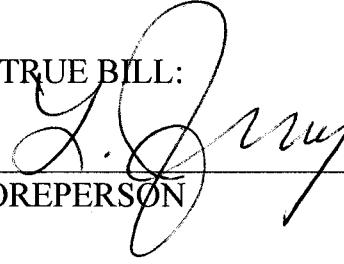 TRUE BILL:
L.
OREPERSON